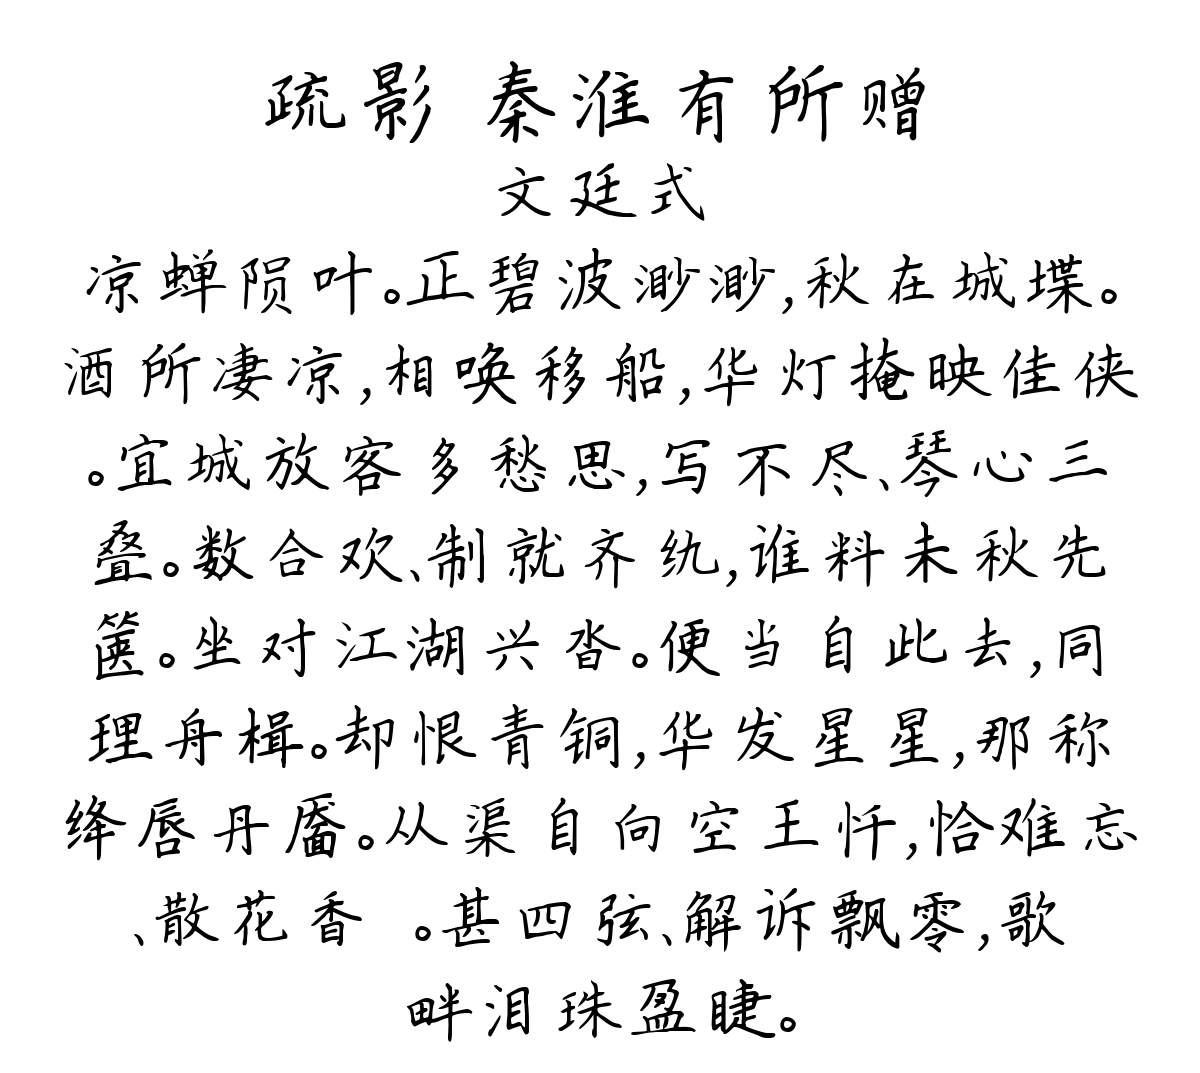 疏影 秦淮有所赠
文廷式
凉蝉陨叶。正碧波渺渺,秋在城堞。
酒所凄凉,相唤移船,华灯掩映佳侠
。宜城放客多愁思,写不尽、琴心三
叠。数合欢、制就齐纨,谁料未秋先
箧。坐对江湖兴沓。便当自此去,同
理舟楫。却恨青铜,华发星星,那称
绛唇丹靥。从渠自向空王忏,恰难忘
、散花香 。甚四弦、解诉飘零,歌
畔泪珠盈睫。